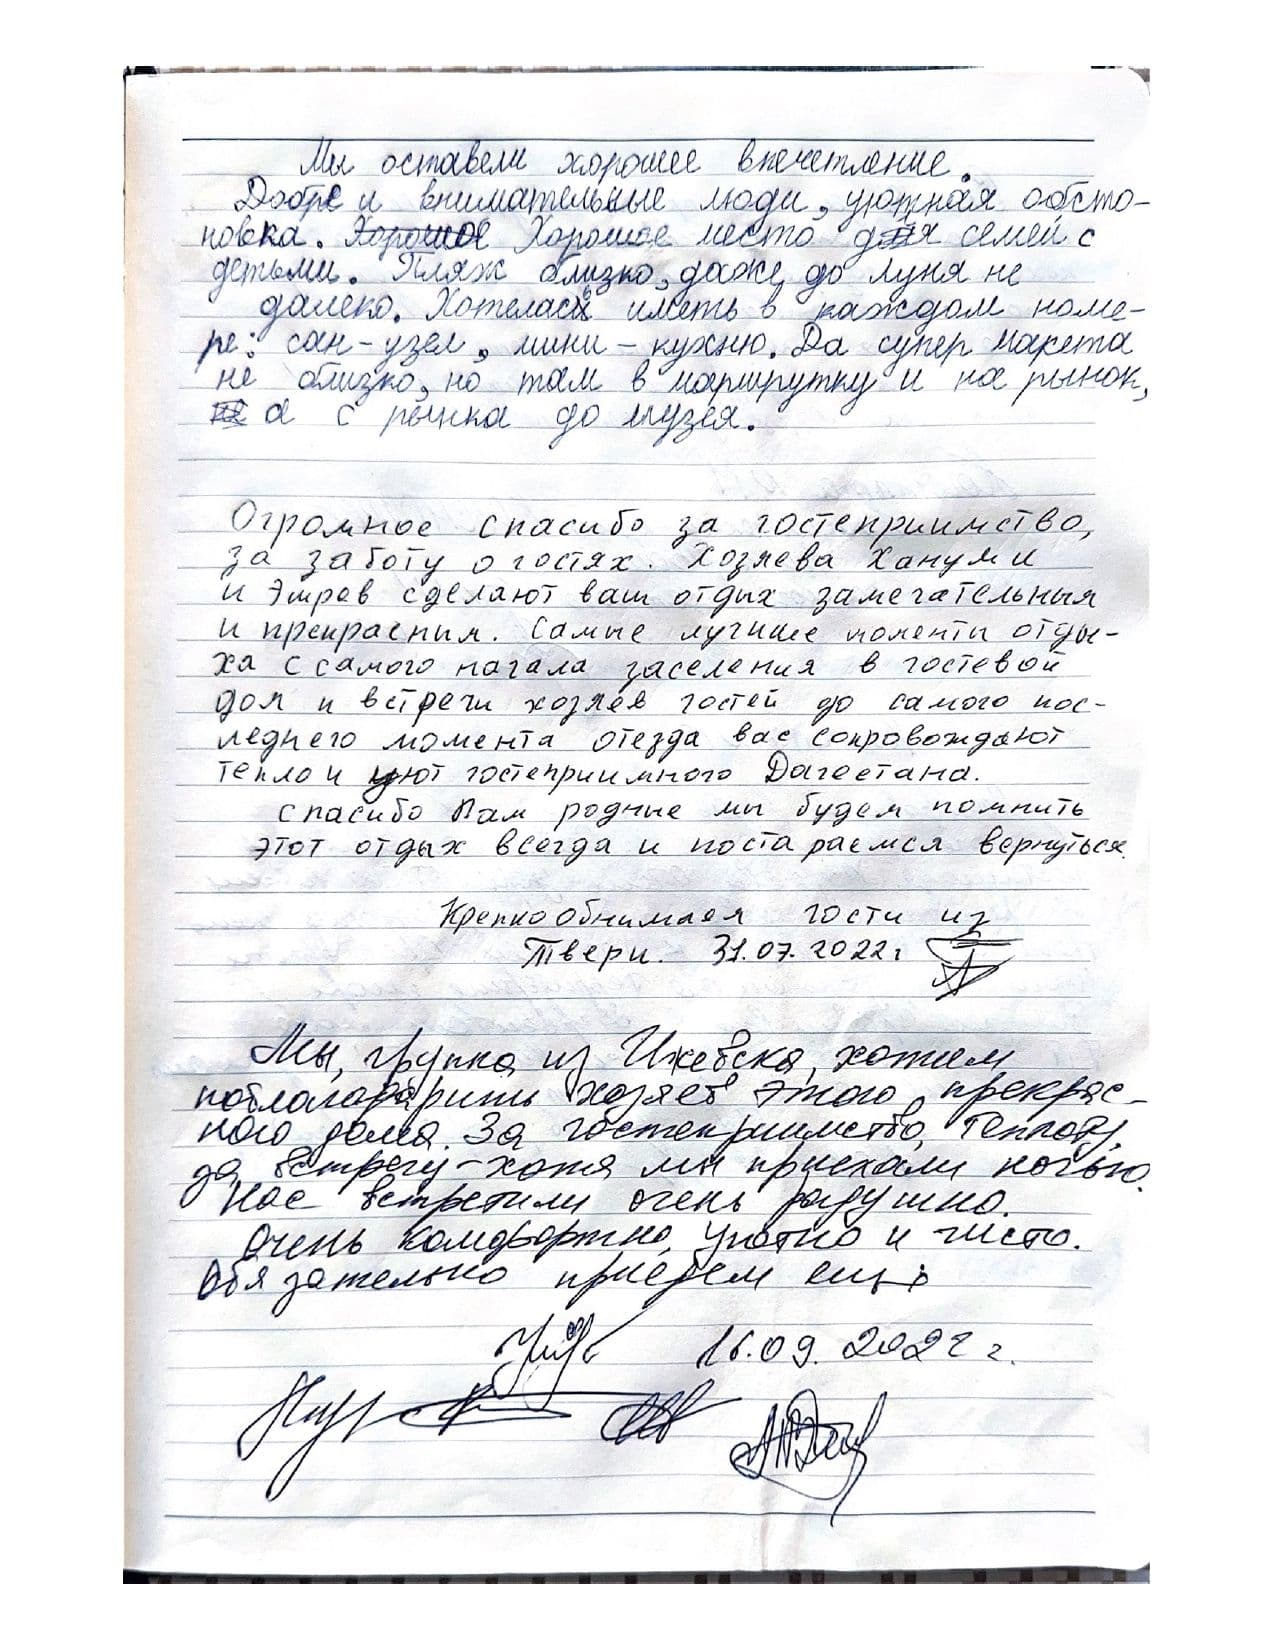 Мы оставели хорошее впечетление.
Добре и внимательные люди, уютная обсто-
новка. Хорошое Хорошое место для семей с
детьми. Пляж близко, даже до луня не
далеко. Хотелась иметь в каждом номе-
ре: сан-узел, мини-кухню. Да супер маркета
не близко, но там в маршрутку и на рынок,
а с рынка до музея.
Огромное спасибо за гостеприимство,
за заботу о гостях. Хозяева Ханум и
и Эмрев сделают ваш отдых замечательныя
и прекрасным. Самые лучшие моменты отды-
ха с самого начала заселения в гостевой
дом и встречи хозяев гостей до самого пос-
леднего момента отезда вас сопровождают
тепло и уют гостеприимного Дагестана.
Спасибо Вам родные мы будем помнить
этот отдых всегда и постараемся вернуться.
Крепко обнимаея гости из
Твери. 31.07.2022г
Мы, группа из Ижевска, хотим
поблагодарить хозяев этого прекрас-
ного дома. За гостеприимство, теплоту,
за встречу-хотя мы приехали ночью.
Нас встретили очень радушно.
Очень комфортно, уютно и чисто.
Обязательно приедем ещё
16.09.2022 г.